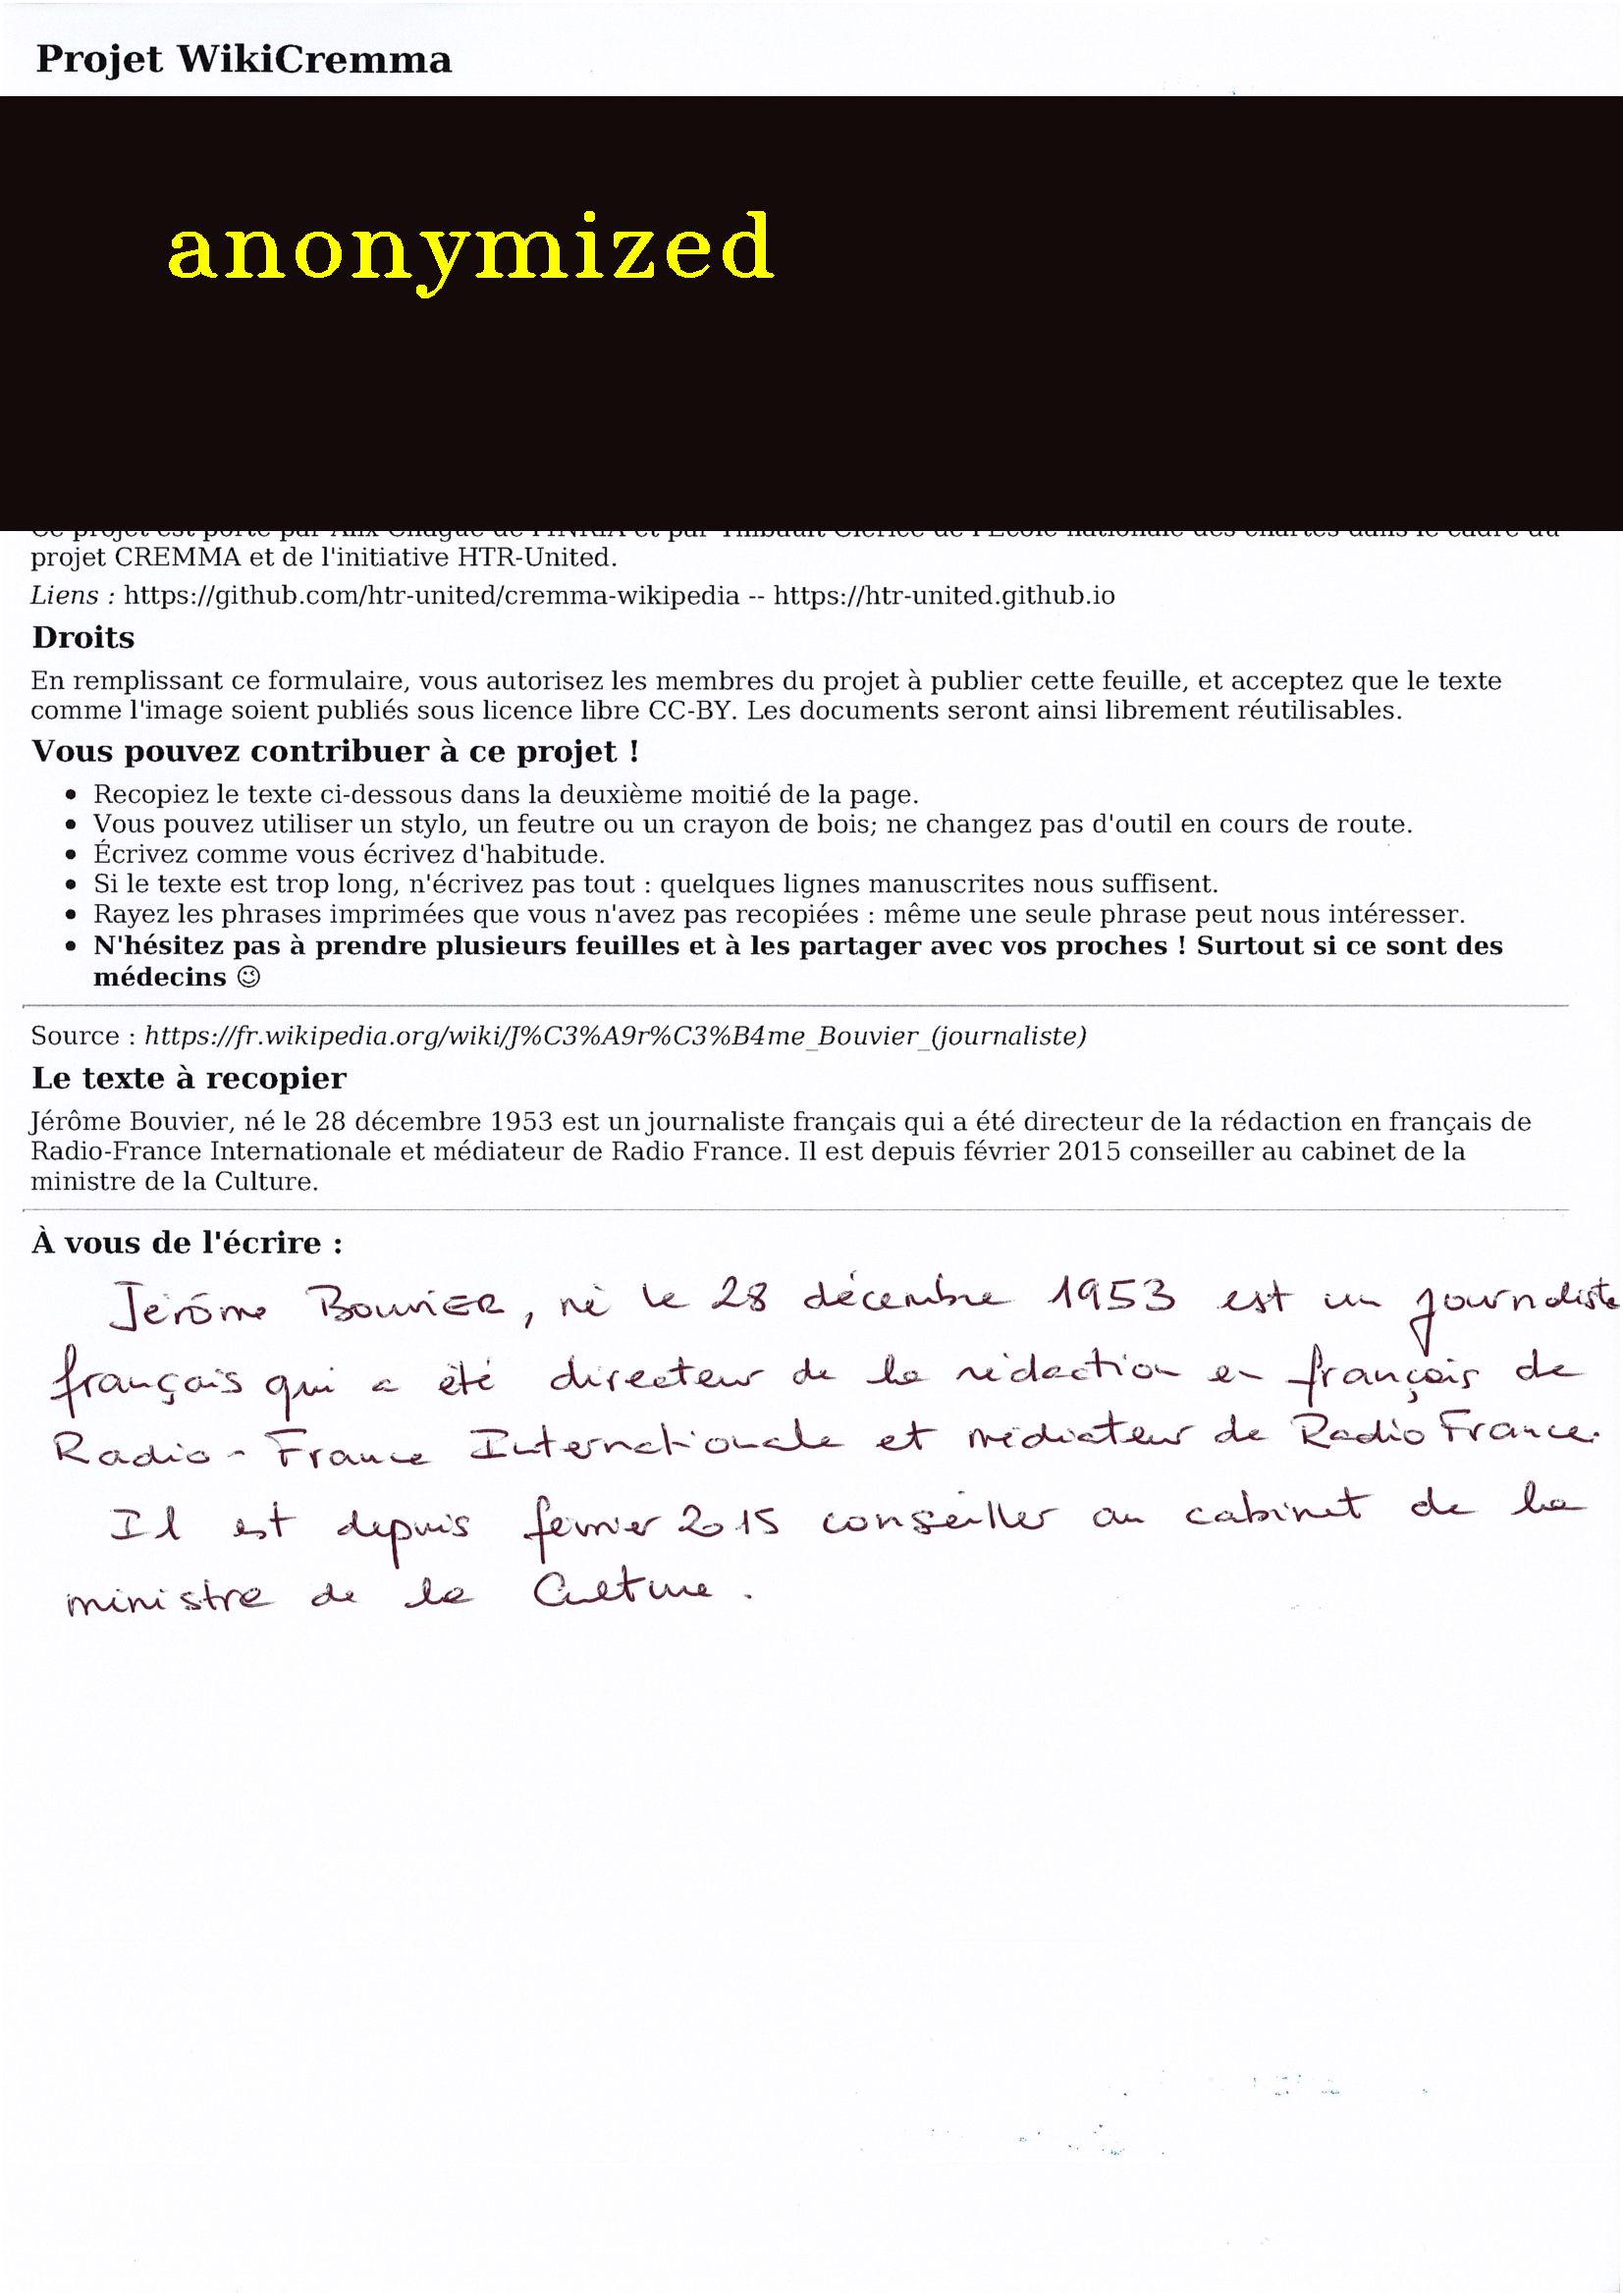 Projet WikiCremma
anonymized
Ce projet est porté par Alix Chagué de l'INRIA et par Thibault Clérice de l'École nationale des chartes dans le cadre du
projet CREMMA et de l'initiative HTR-United.
Liens : https://github.com/htr-united/cremma-wikipedia -- https://htr-united.github.io
Droits
En remplissant ce formulaire, vous autorisez les membres du projet à publier cette feuille, et acceptez que le texte
comme l'image soient publiés sous licence libre CC-BY. Les documents seront ainsi librement réutilisables.
Vous pouvez contribuer à ce projet !
• Recopiez le texte ci-dessous dans la deuxième moitié de la page.
• Vous pouvez utiliser un stylo, un feutre ou un crayon de bois; ne changez pas d'outil en cours de route.
• Écrivez comme vous écrivez d'habitude.
• Si le texte est trop long, n'écrivez pas tout : quelques lignes manuscrites nous suffisent.
• Rayez les phrases imprimées que vous n'avez pas recopiées : même une seule phrase peut nous intéresser.
• N'hésitez pas à prendre plusieurs feuilles et à les partager avec vos proches ! Surtout si ce sont des
médecins ☺
Source : https://fr.wikipedia.org/wiki/J%C3%A9r%C3%B4me_Bouvier_(journaliste)
Le texte à recopier
Jérôme Bouvier, né le 28 décembre 1953 est un journaliste français qui a été directeur de la rédaction en français de
Radio-France Internationale et médiateur de Radio France. Il est depuis février 2015 conseiller au cabinet de la
ministre de la Culture.
À vous de l'écrire :
Jérôme BouviER, né le 28 décembre 1953 est un journaliste
français qui a été directeur de la rédaction en français de
Radio-France Internationale et médiateur de Radio France.
Il est depuis février 2015 conseiller au cabinet de la
ministre de la Culture.